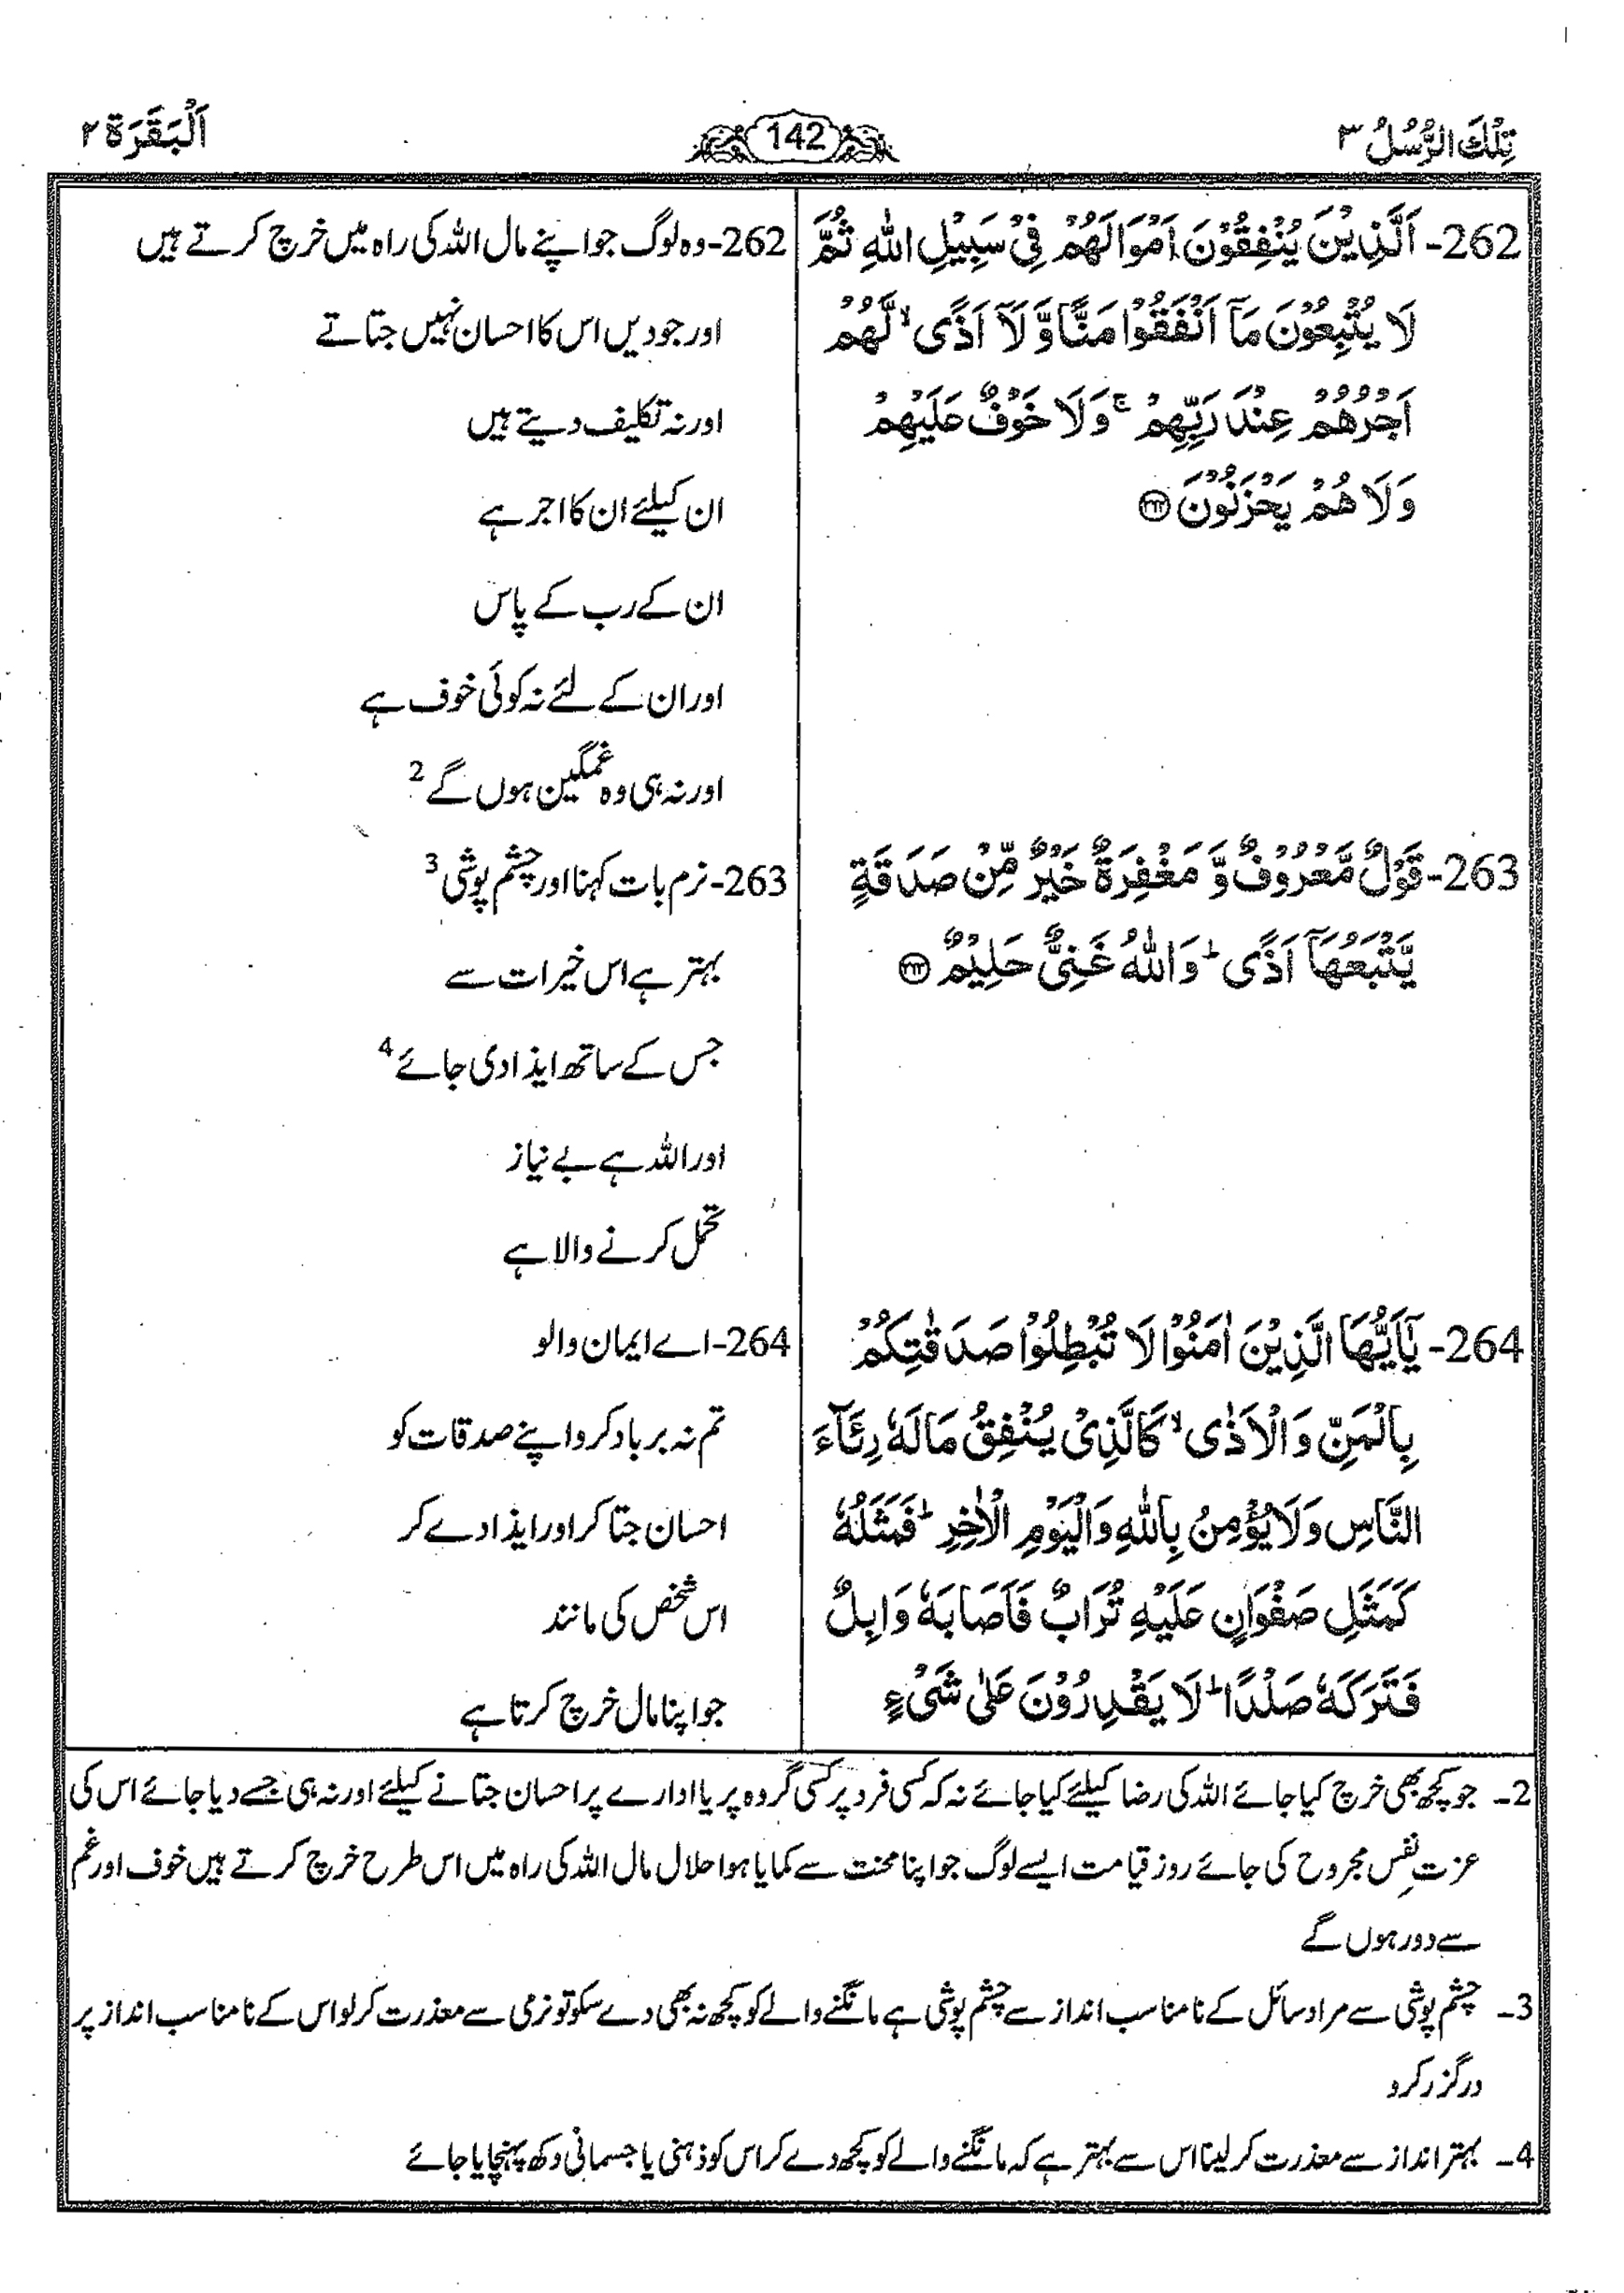 تِلْكَ الرُّسُلُ ٣
142
اَلْبَقَرَة ٢
262- اَلَّذِيْنَ يُنْفِقُوْنَ اَمْوَالَهُمْ فِيْ سَبِيْلِ اللّٰهِ ثُمَّ
لَا يُتْبِعُوْنَ مَآ اَنْفَقُوْا مَنًّا وَّلَآ اَذًى ۙ لَّهُمْ
اَجْرُهُمْ عِنْدَ رَبِّهِمْ ۚ وَلَا خَوْفٌ عَلَيْهِمْ
وَلَا هُمْ يَحْزَنُوْنَ ﴿٢٦٢﴾
263- قَوْلٌ مَّعْرُوْفٌ وَّ مَغْفِرَةٌ خَيْرٌ مِّنْ صَدَقَةٍ
يَّتْبَعُهَآ اَذًى ؕ وَاللّٰهُ غَنِيٌّ حَلِيْمٌ ﴿٢٦٣﴾
264- يٰٓاَيُّهَا الَّذِيْنَ اٰمَنُوْا لَا تُبْطِلُوْا صَدَقٰتِكُمْ
بِالْمَنِّ وَالْاَذٰى ۙ كَالَّذِيْ يُنْفِقُ مَالَهٗ رِئَآءَ
النَّاسِ وَلَا يُؤْمِنُ بِاللّٰهِ وَالْيَوْمِ الْاٰخِرِ ؕ فَمَثَلُهٗ
كَمَثَلِ صَفْوَانٍ عَلَيْهِ تُرَابٌ فَاَصَابَهٗ وَابِلٌ
فَتَرَكَهٗ صَلْدًا ؕ لَا يَقْدِرُوْنَ عَلٰى شَيْءٍ
262- وہ لوگ جو اپنے مال اللہ کی راہ میں خرچ کرتے ہیں
اور جو دیں اس کا احسان نہیں جتاتے
اور نہ تکلیف دیتے ہیں
ان کیلئے ان کا اجر ہے
ان کے رب کے پاس
اور ان کے لئے نہ کوئی خوف ہے
اور نہ ہی وہ غمگین ہوں گے 2
263- نرم بات کہنا اور چشم پوشی 3
بہتر ہے اس خیرات سے
جس کے ساتھ ایذا دی جائے 4
اور اللہ ہے بے نیاز
تحمل کرنے والا ہے
264- اے ایمان والو
تم نہ برباد کرو اپنے صدقات کو
احسان جتا کر اور ایذا دے کر
اس شخص کی مانند
جو اپنا مال خرچ کرتا ہے
2- جو کچھ بھی خرچ کیا جائے اللہ کی رضا کیلئے کیا جائے نہ کہ کسی فرد پر کسی گروہ پر یا ادارے پر احسان جتانے کیلئے اور نہ ہی جسے دیا جائے اس کی
عزتِ نفس مجروح کی جائے روز قیامت ایسے لوگ جو اپنا محنت سے کمایا ہوا حلال مال اللہ کی راہ میں اس طرح خرچ کرتے ہیں خوف اور غم
سے دور ہوں گے
3- چشم پوشی سے مراد سائل کے نامناسب انداز سے چشم پوشی ہے مانگنے والے کو کچھ نہ بھی دے سکو تو نرمی سے معذرت کر لو اس کے نامناسب انداز پر
درگزر کرو
4- بہتر انداز سے معذرت کر لینا اس سے بہتر ہے کہ مانگنے والے کو کچھ دے کر اس کو ذہنی یا جسمانی دکھ پہنچایا جائے